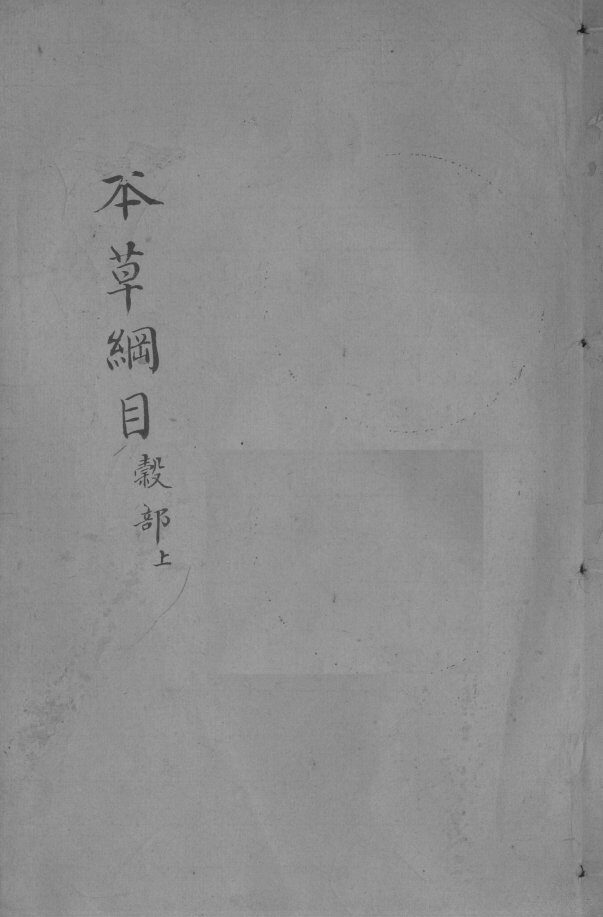 本草綱目
穀部上